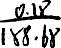 0.18
188.68